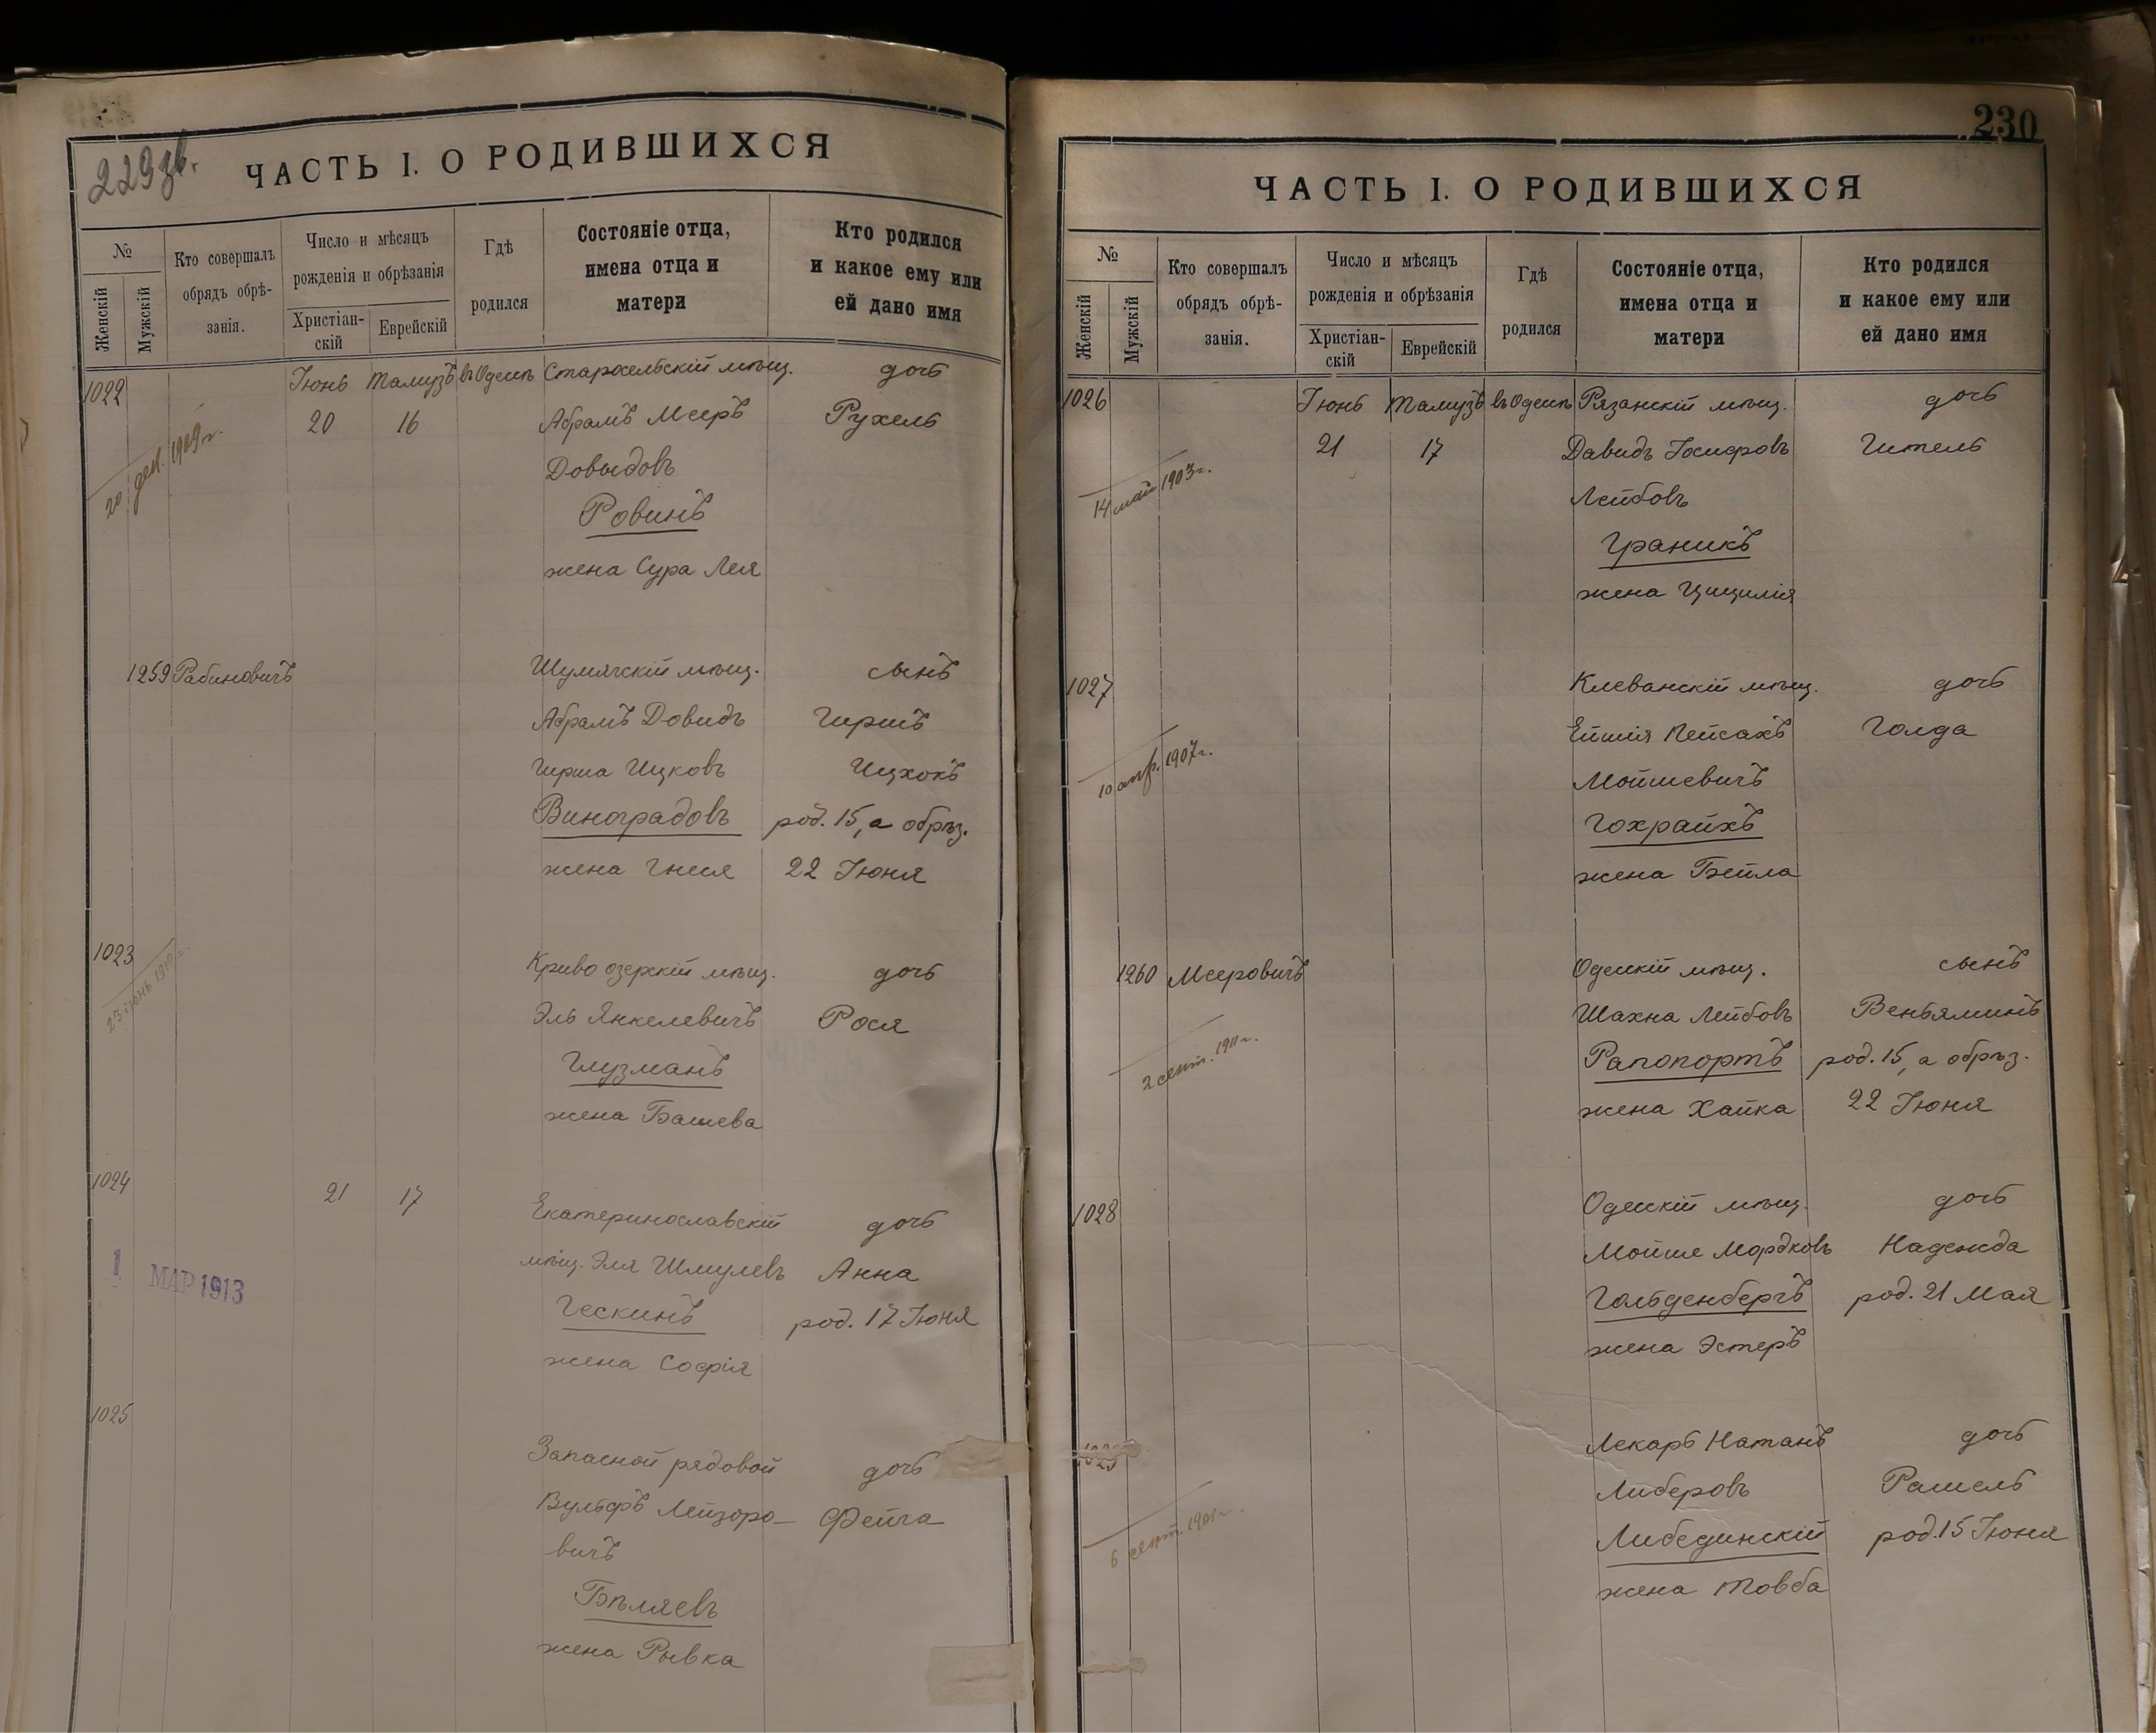 229 зв.
ЧАСТЬ I. О РОДИВШИХСЯ
№
Женскій
Мужскій
Кто совершалъ
обрядъ обрѣ-
занія.
Число и мѣсяцъ
рожденія и обрѣзанія
Христіан-
скій
Еврейскій
Гдѣ
родился
Состояніе отца,
имена отца и
матери
Кто родился
и какое ему или
ей дано имя
1022 Іюнь Тамузъ въ Одессѣ Старосельскій мѣщ. дочь
20 16 Абрамъ Мееръ Рухель
20 дек. 1909 г.
Довыдовъ
Ровинъ
жена Сура Лея
1259 Рабиновичъ Шумячскій мѣщ. сынъ
Абрамъ Довидъ Гиршъ
Гирша Ицковъ Ицхокъ
Виноградовъ род. 15, а обрѣз.
жена Гнеся 22 Іюня
1023 Криво озерскій мѣщ. дочь
23 іюнь 1910 г.
Эль Янкелевичъ Рося
Глузманъ
жена Башева
1024 21 17 Екатеринославскій дочь
1 МАР 1913
мѣщ. Эля Шмулевъ Анна
Гескинъ род. 17 Іюня
жена Софія
1025 Запасной рядовой дочь
Вульфъ Лейзоро- Фейга
вичъ
Бѣляевъ
жена Рывка
230
ЧАСТЬ I. О РОДИВШИХСЯ
№
Женскій
Мужскій
Кто совершалъ
обрядъ обрѣ-
занія.
Число и мѣсяцъ
рожденія и обрѣзанія
Христіан-
скій
Еврейскій
Гдѣ
родился
Состояніе отца,
имена отца и
матери
Кто родился
и какое ему или
ей дано имя
1026 Іюнь Тамузъ въ Одессѣ Рязанскій мѣщ. дочь
21 17 Давидъ Іосифовъ Гитель
14 май 1903 г.
Лейбовъ
Граникъ
жена Цицилія
1027 Клеванскій мѣщ. дочь
Пейсахъ Голда
10 апр. 1907 г.
Мойшевичъ
Гохрайхъ
жена Бейла
1260 Мееровичъ Одесскій мѣщ. сынъ
Шахна Лейбовъ Веньяминъ
2 сент. 1911 г.
Рапопортъ род. 15, а обрѣз.
жена Хайка 22 Іюня
1028 Одесскій мѣщ. дочь
Мойше Мордковъ Надежда
Гольденбергъ род. 21 Мая
жена Эстеръ
Лекарь Натанъ дочь
Либеровъ Рашель
6 сент. 1901 г.
Либединскій род. 15 Іюня
жена Товба